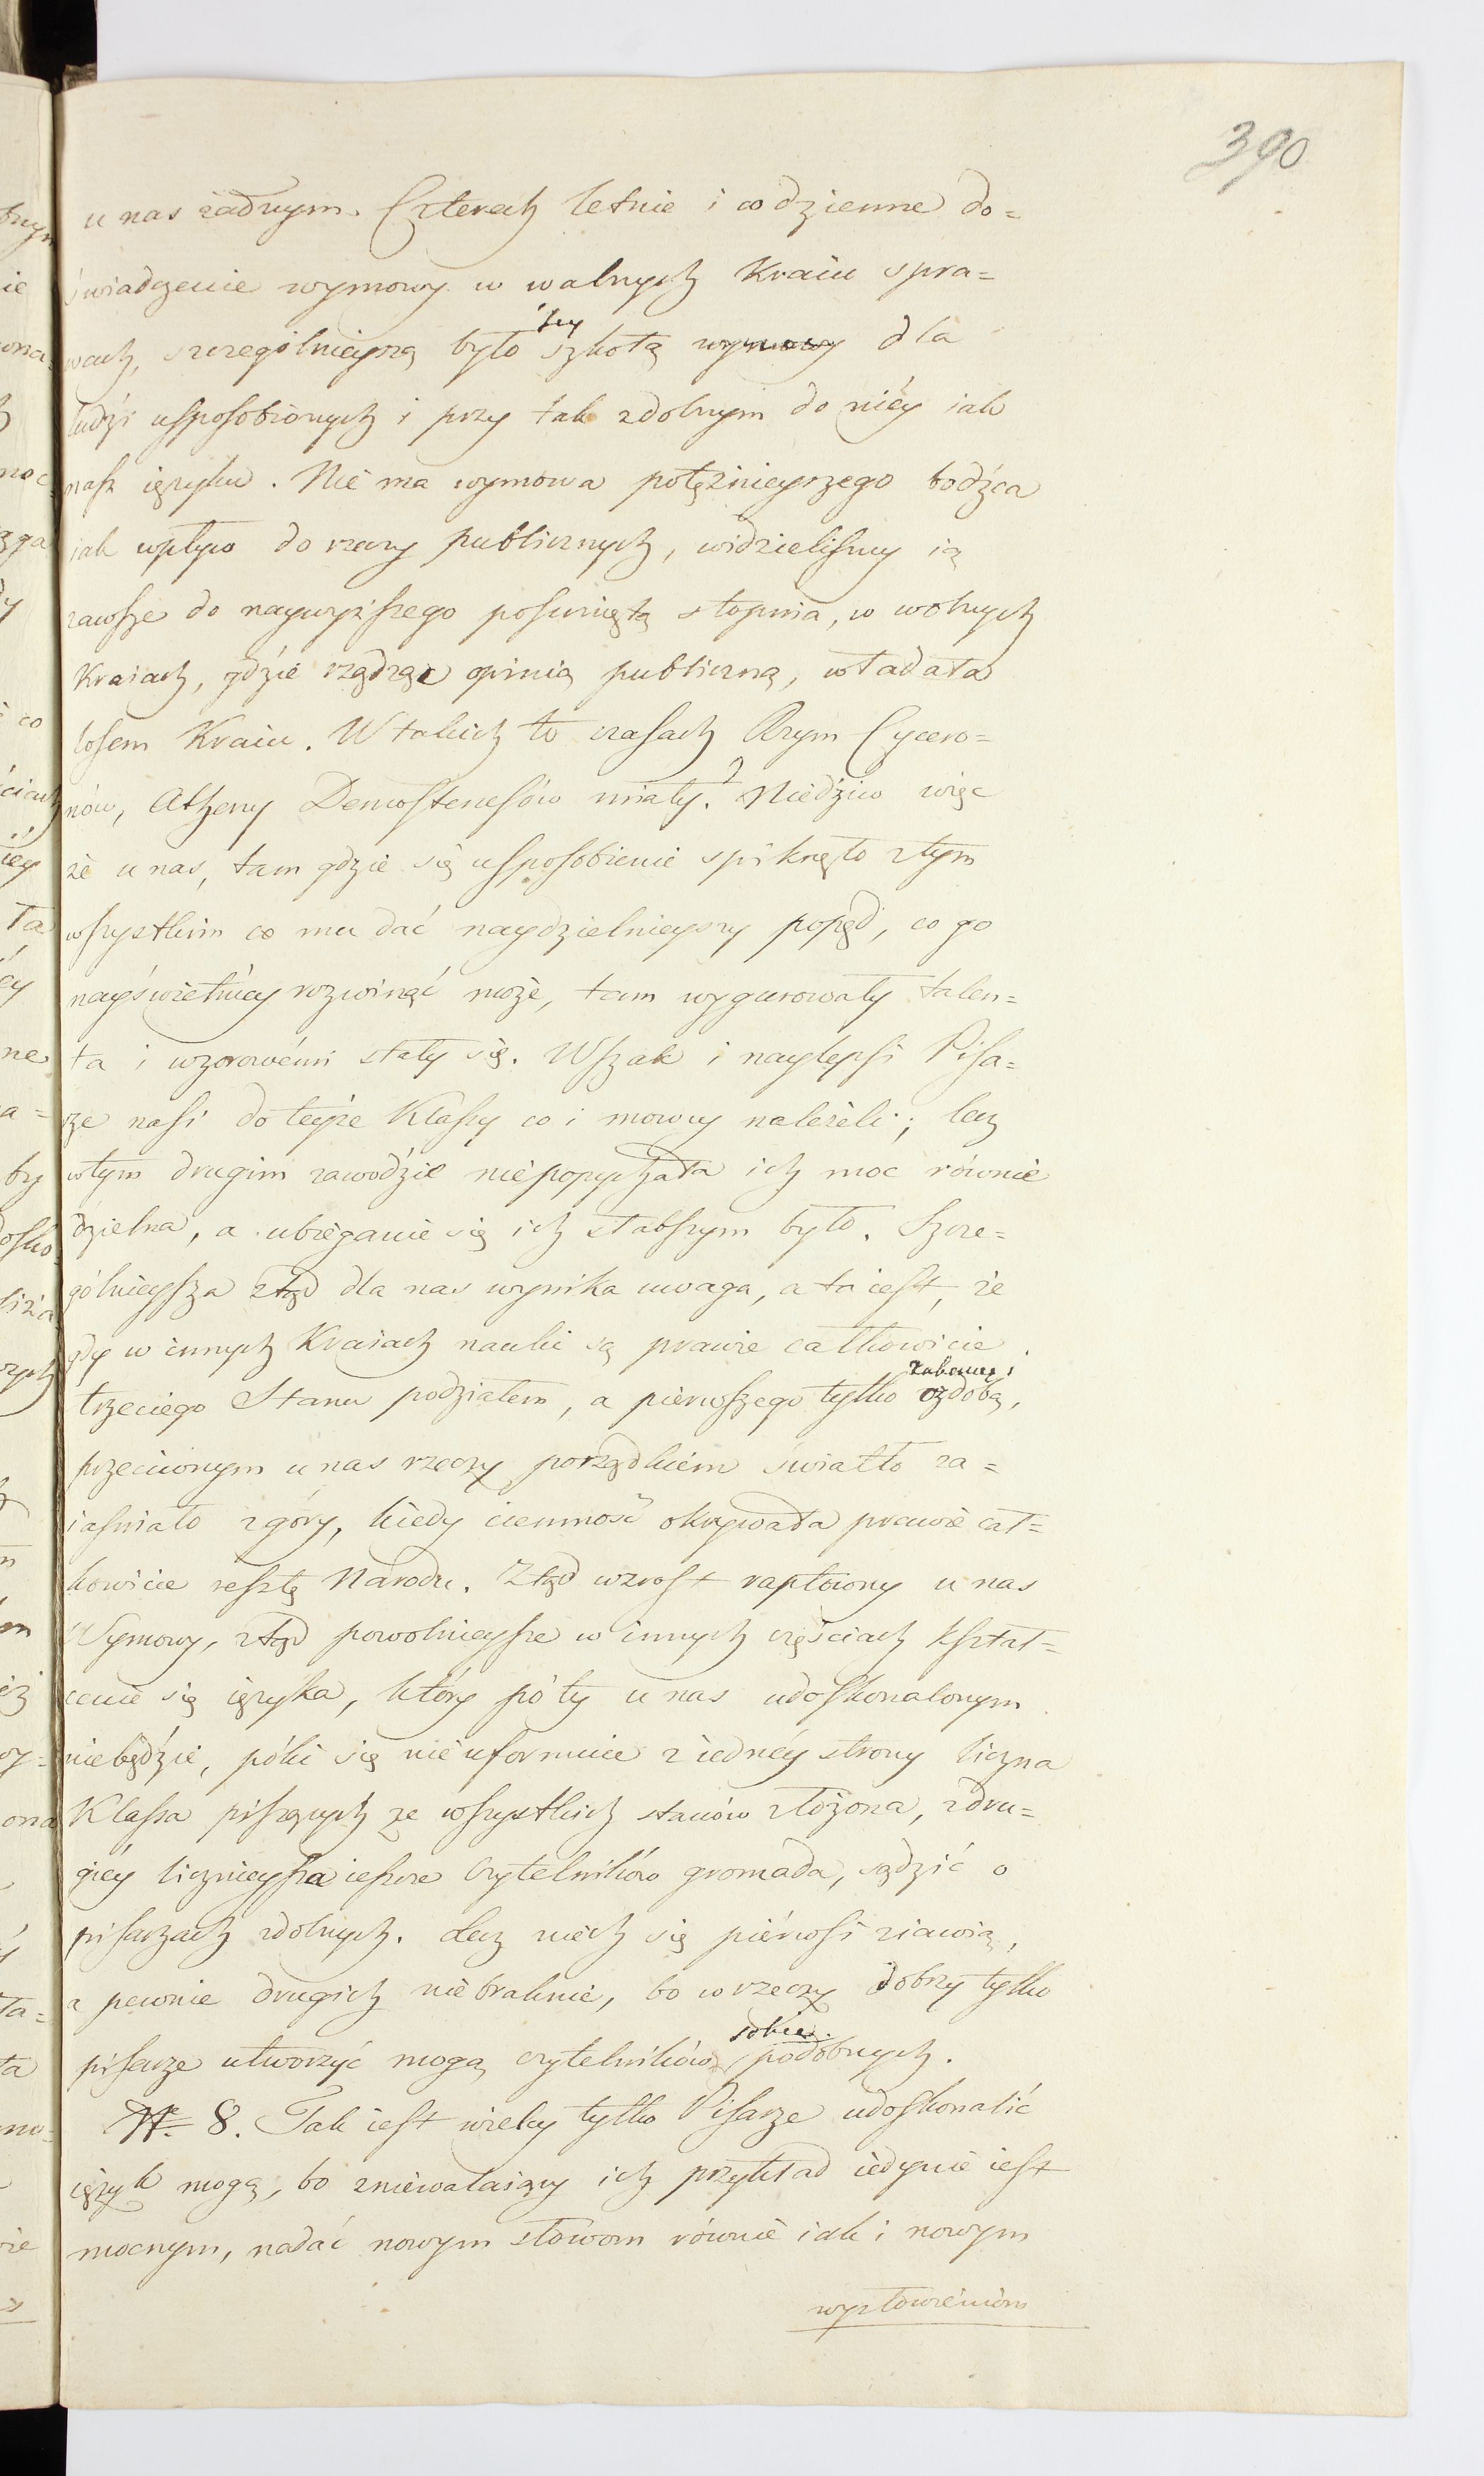 390
u nas żadnym. Czterech letnie i codzienne do=
świadczenie wymowy w walnych Kraiu spra=
wach, szczególnieyszą było iey szkołą wymowy dla
ludzi usposobionych i przy tak zdolnym do niéy iak
nasz ięzyku. Nie ma wymowa potężnieyszego bodźca
iak wpływ do rzeczy publicznych, widzieliśmy ią
zawsze do naywyższego posuniętą stopnia, w wolnych
Kraiach, gdzie rządząc opinią publiczną, władała
losem Kraiu. W takich to czasach Rzym Cycero=
nów, Atheny Demostenesów miały.? Niedziw więc
że u nas, tam gdzie się usposobienie spiknęło z tym
wszystkim co mu dać naydzielnieyszy popęd, co go
nayświetniéy rozwinąć może, tam wygurowały talen=
ta i wzorowémi stały się. Wszak i naylepsi Pisa=
rze nasi do teyże Klassy co i mowcy należeli; lecz
w tym drugim zawodzie niepopychała ich moc równie
dzielna, a ubieganie się ich słabszym było. Szcze=
gólnieysza ztąd dla nas wynika uwaga, a ta iest, że
gdy w innych Kraiach nauki są prawie całkowicie
trzeciego Stanu podziałem, a pierwszego tylko zabawą i ozdobą,
przeciwnym u nas rzeczy porządkiem światło za=
iaśniało z góry, kiedy ciemność okrywała prawie cał=
kowicie resztę Narodu. Ztąd wzrost raptowny u nas
Wymowy, ztąd powolnieysze w innych częściach kształ=
cenie się ięzyka, który póty u nas udoskonalonym
niebędzie, póki się nie uformuie z iednéy strony liczna
Klassa piszących ze wszystkich stanów złożona, z dru=
giéy licznieysza ieszcze Czytelników gromada, sądzić o
pisarzach zdolnych. Lecz niech się piérwsi ziawią,
a pewnie drugich nie braknie, bo w rzeczy dobrzy tylko
pisarze utworzyć mogą czytelników sobie podobnych.
№ 8. Tak iest wielcy tylko Pisarze udoskonalić
ięzyk mogą, bo zniewalaiący ich przykład iedynie iest
mocnym, nadać nowym słowom równie iak i nowym
wysłowieniom